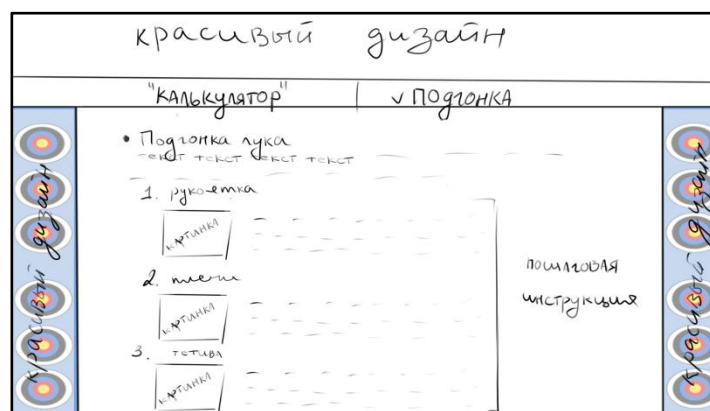 красивый дизайн
"КАЛЬКУЛЯТОР" | ✓ ПОДГОНКА
• Подгонка лука
текст текст текст текст
1. рукоятка
КАРТИНКА
2. плечи
КАРТИНКА
3. тетива
КАРТИНКА
пошаговая
инструкция
красивый дизайн
красивый дизайн